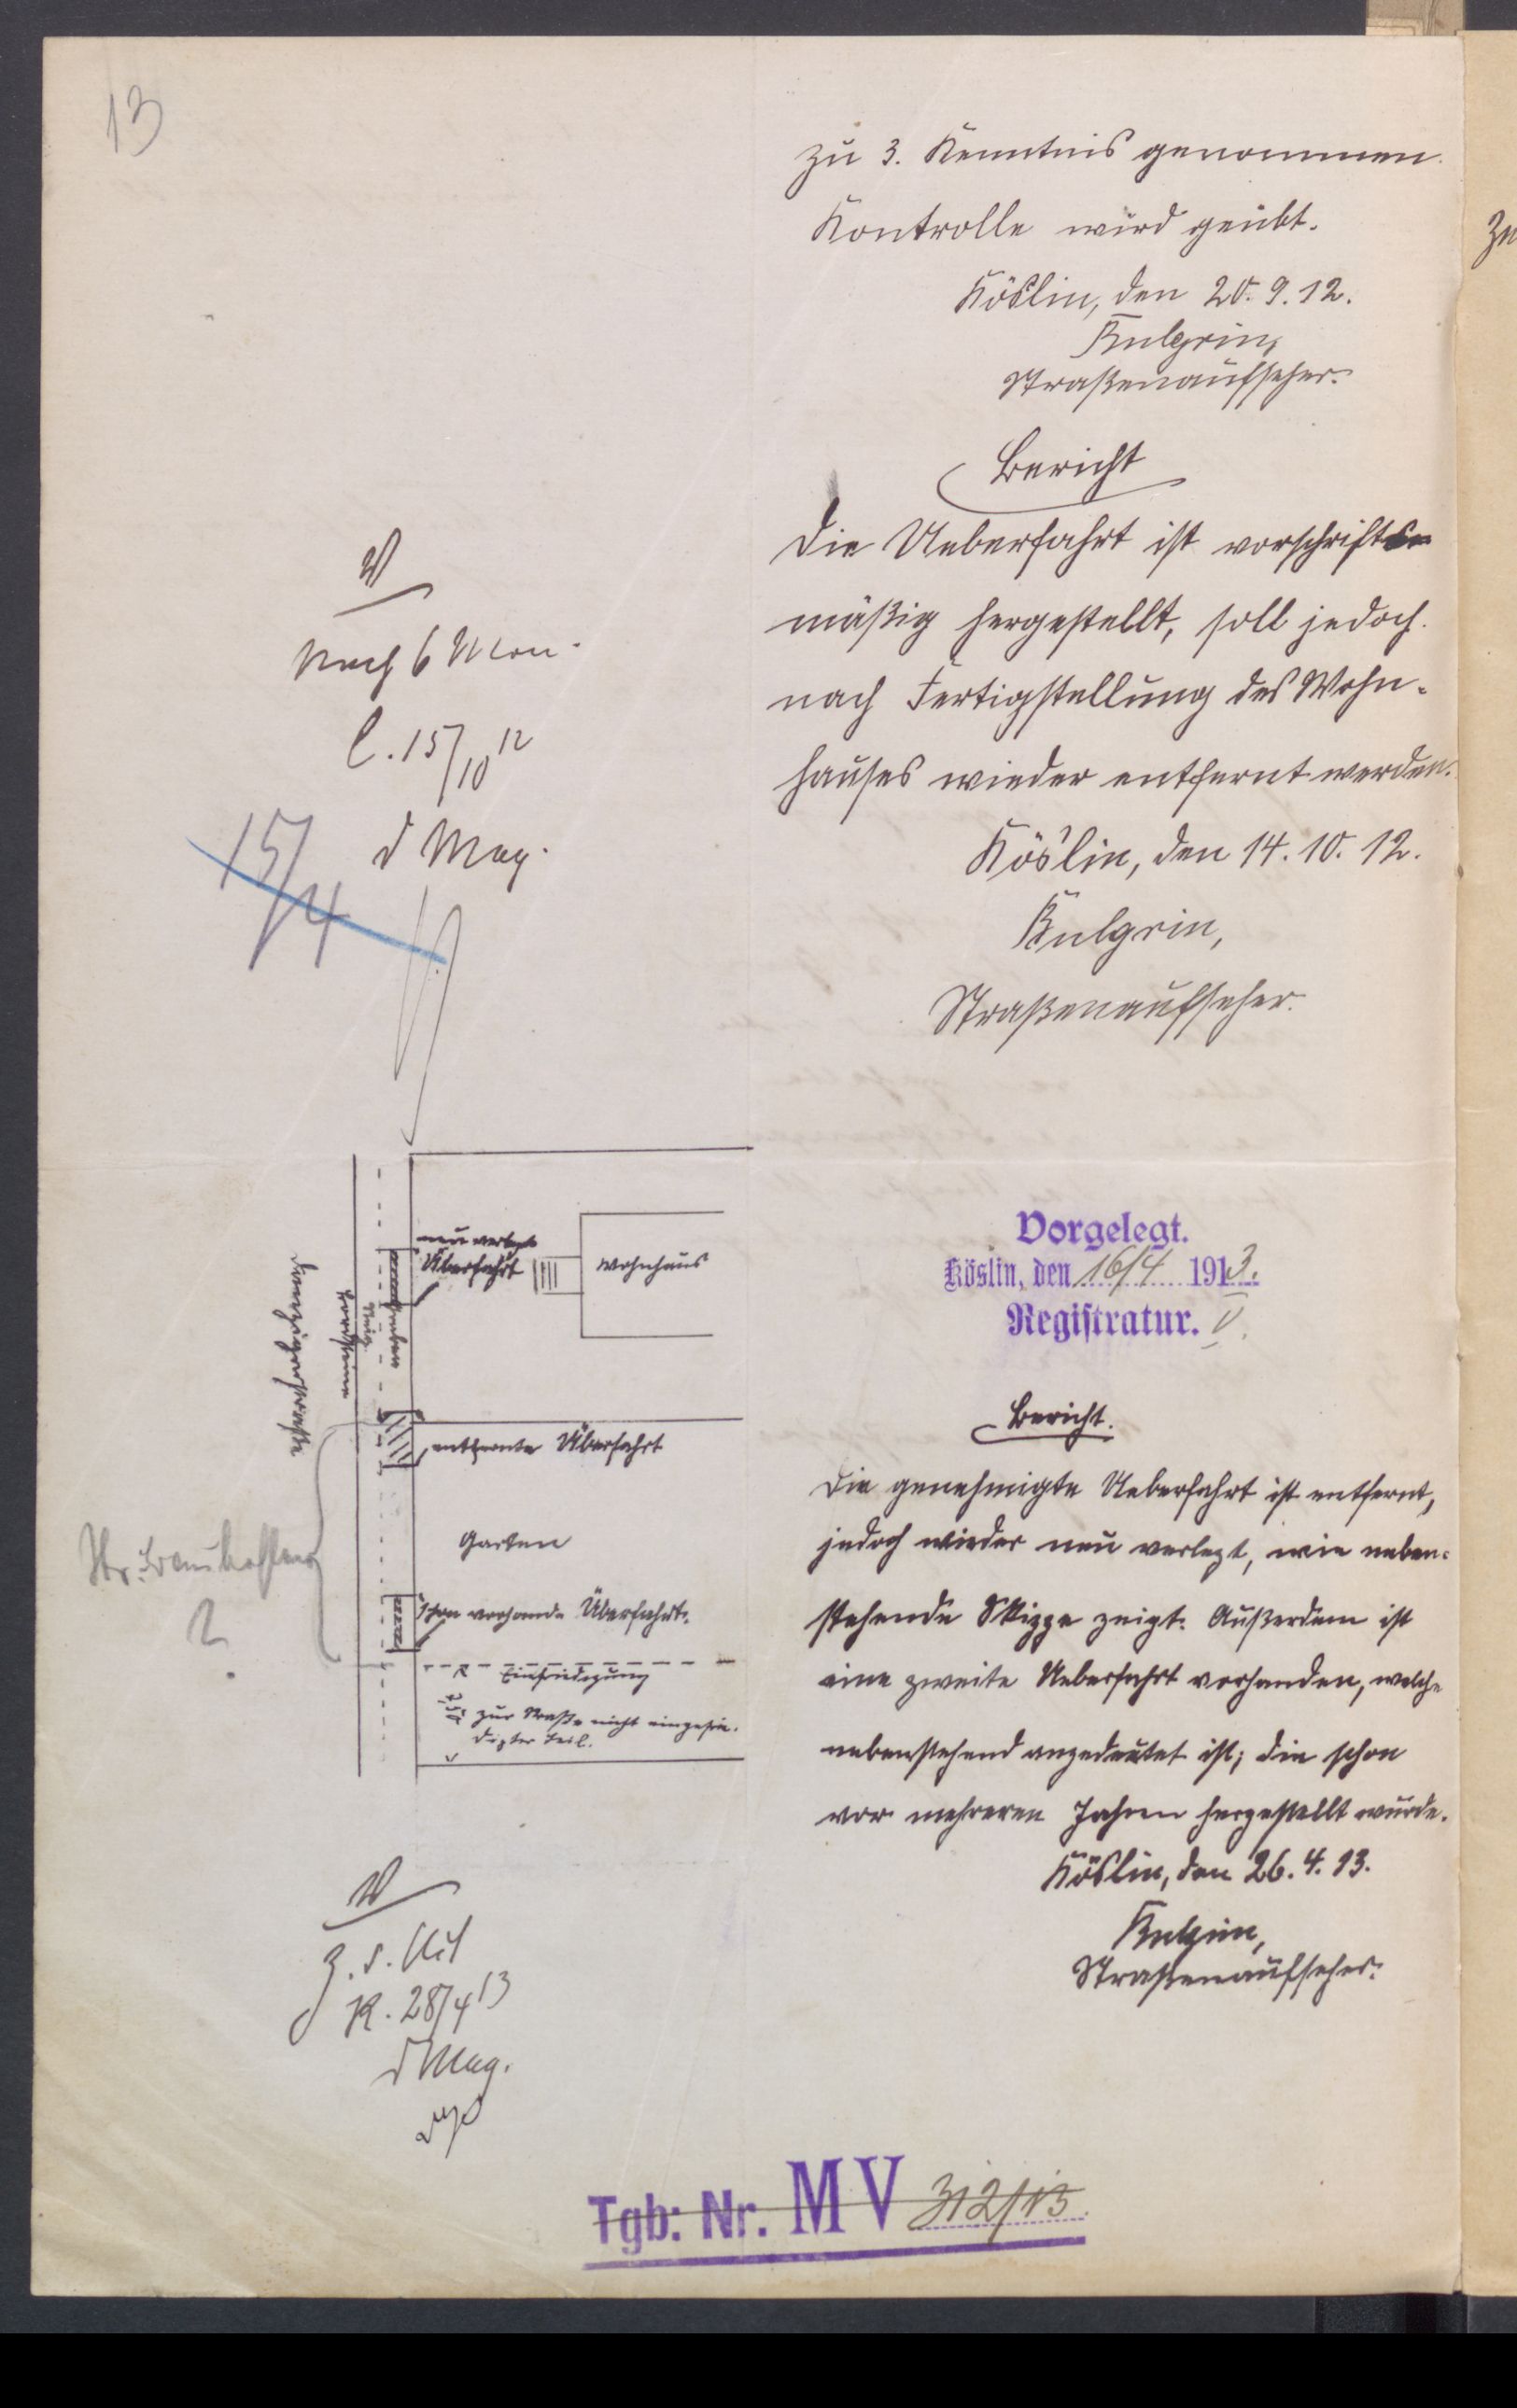 13
zu 3. Kenntnis genommen.
Kontrolle wird geübt.
Köslin, den 20. 9. 12.
Kulgrin,
Straßenaufseher.
Bericht
Die Ueberfahrt ist vorschrifts-
mäßig hergestellt, soll jedoch
nach Fertigstellung des Wohn-
hauses wieder entfernt werden.
Köslin, den 14. 10. 12.
Kulgrin,
Straßenaufseher.
V
Nach 6 Mon.
C. 15/10 12
d Mag.
15/4
neu verlegte
Überfahrt
Wohnhaus
Graben
Danzigerstraße
entfernte Überfahrt
Garten
schon vorhande Überfahrt.
Einfriedigung
zur Straße nicht eingefrie-
digter Teil.
?
Vorgelegt.
Köslin, den 16/4 1913.
Registratur. V.
Bericht.
Die genehmigte Ueberfahrt ist entfernt,
jedoch wieder neu verlegt, wie neben-
stehende Skizze zeigt. Außerdem ist
eine zweite Ueberfahrt vorhanden, welche
nebenstehend angedeutet ist; die schon
vor mehreren Jahren hergestellt wurde.
Köslin, den 26. 4. 13.
Kulgrin,
Straßenaufseher.
V
K. 28/4 13
d Mag.
Tgb: Nr. M V 312/13